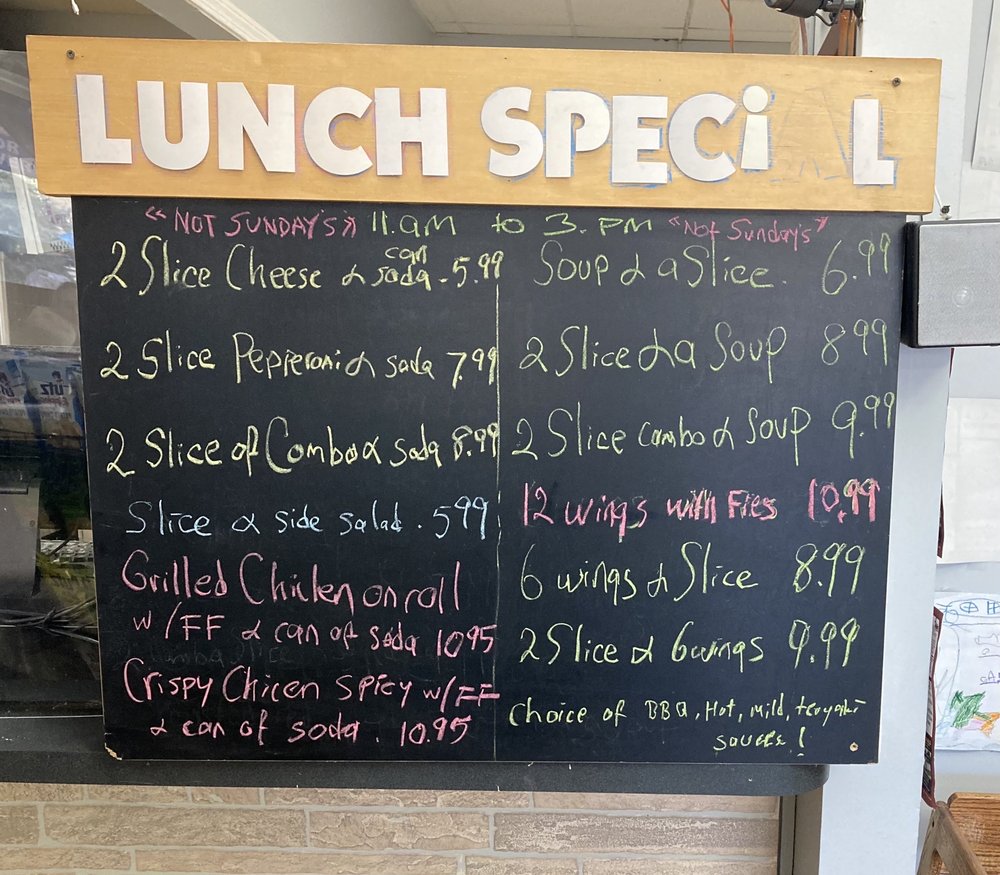 LUNCH SPECiL
"NOT SUNDAY'S" 11AM to 3.PM "Not Sunday's"
2 Slice Cheese & can soda - 5.99
2 Slice Pepperoni & soda 7.99
2 Slice of Combo & soda 8.99
Slice & side salad . 599
Grilled Chicken on roll
w/FF & can of soda 1095
Crispy Chicen Spicy w/FF
& can of soda . 10.95
Soup & a Slice. 6.99
2 Slice & a Soup 899
2 Slice combo & Soup 9.99
12 wings with Fies 10.99
6 wings & Slice 8.99
2 Slice & 6 wings 9.99
Choice of BBQ, Hot, mild, teryaki
sauces!